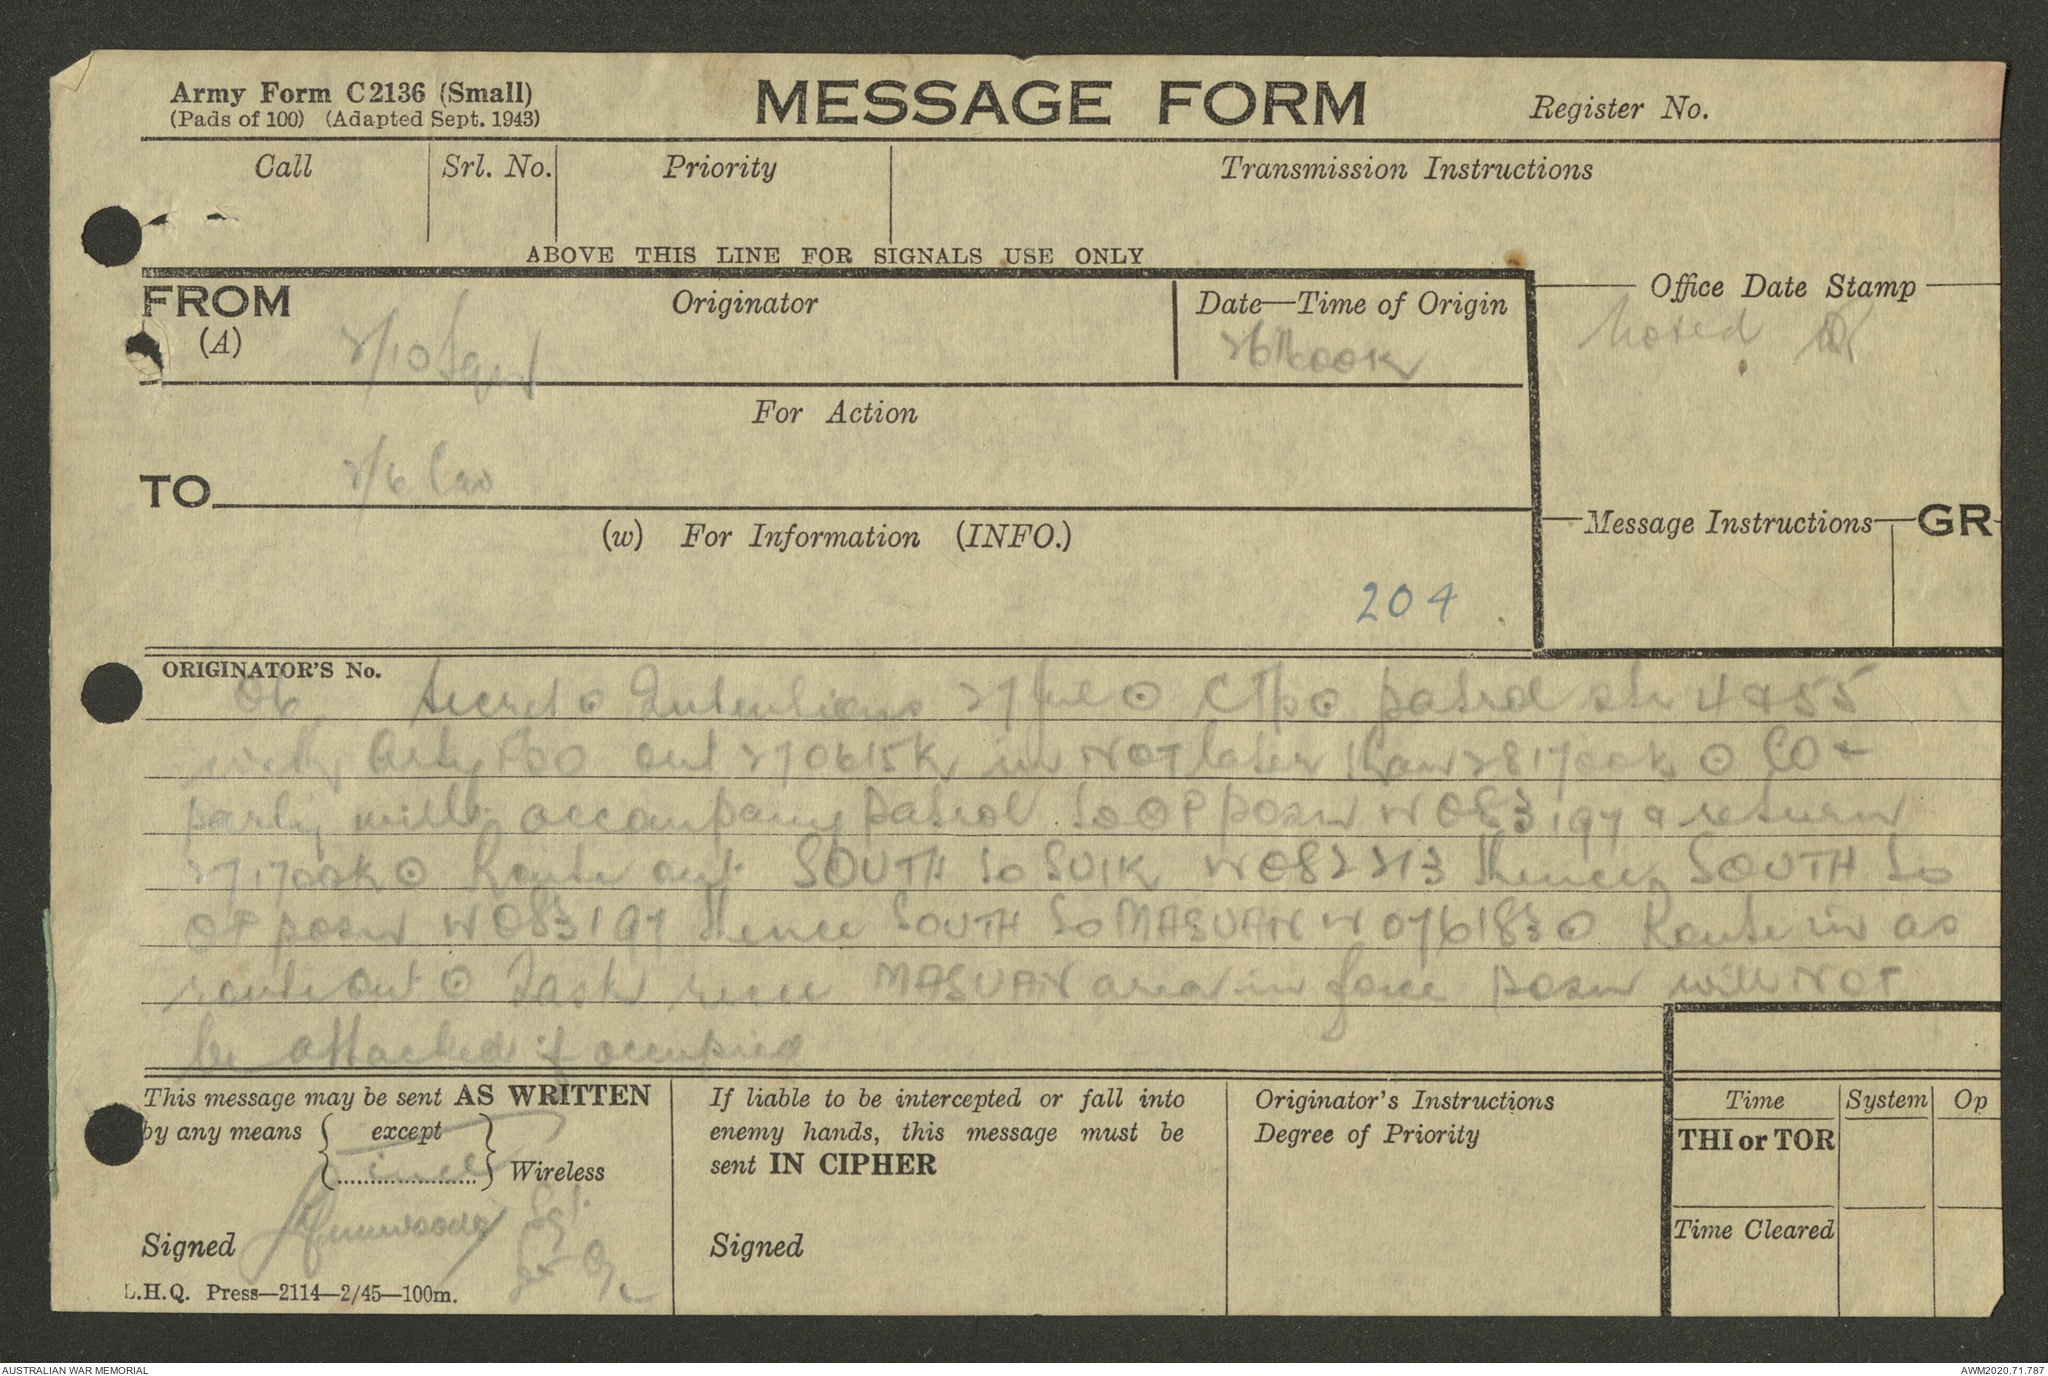 Army Form C2136 (Small)
(Pads of 100) (Adapted Sept. 1943)
MESSAGE FORM
Register No.
Call Srl. No. Priority Transmission Instructions
ABOVE THIS LINE FOR SIGNALS USE ONLY
FROM
(A)
Originator
2/10
Date—Time of Origin
Office Date Stamp
Noted
For Action
TO
2/6
(w) For Information (INFO.)
204
Message Instructions GR
ORIGINATOR'S No.
06 Secret ⊙ Intentions 27 Jul ⊙ patrol str 4 & 55
with Arty FOO out 270615K in NOT later than 281700K ⊙ CO +
party will accompany patrol to OP posn W083197 & return
271700K ⊙ Route out SOUTH to SUIK W082213 thence SOUTH to
OP posn W083197 thence SOUTH to MASUAN W076183 ⊙ Route in as
route out ⊙ Task recce MASUAN area in force posn will NOT
be attacked if occupied
This message may be sent AS WRITTEN
by any means except
incl Wireless
Signed
Sgt
L.H.Q. Press—2114—2/45—100m.
If liable to be intercepted or fall into
enemy hands, this message must be
sent IN CIPHER
Signed
Originator's Instructions
Degree of Priority
Time System Op
THI or TOR
Time Cleared
AUSTRALIAN WAR MEMORIAL
AWM2020.71.787